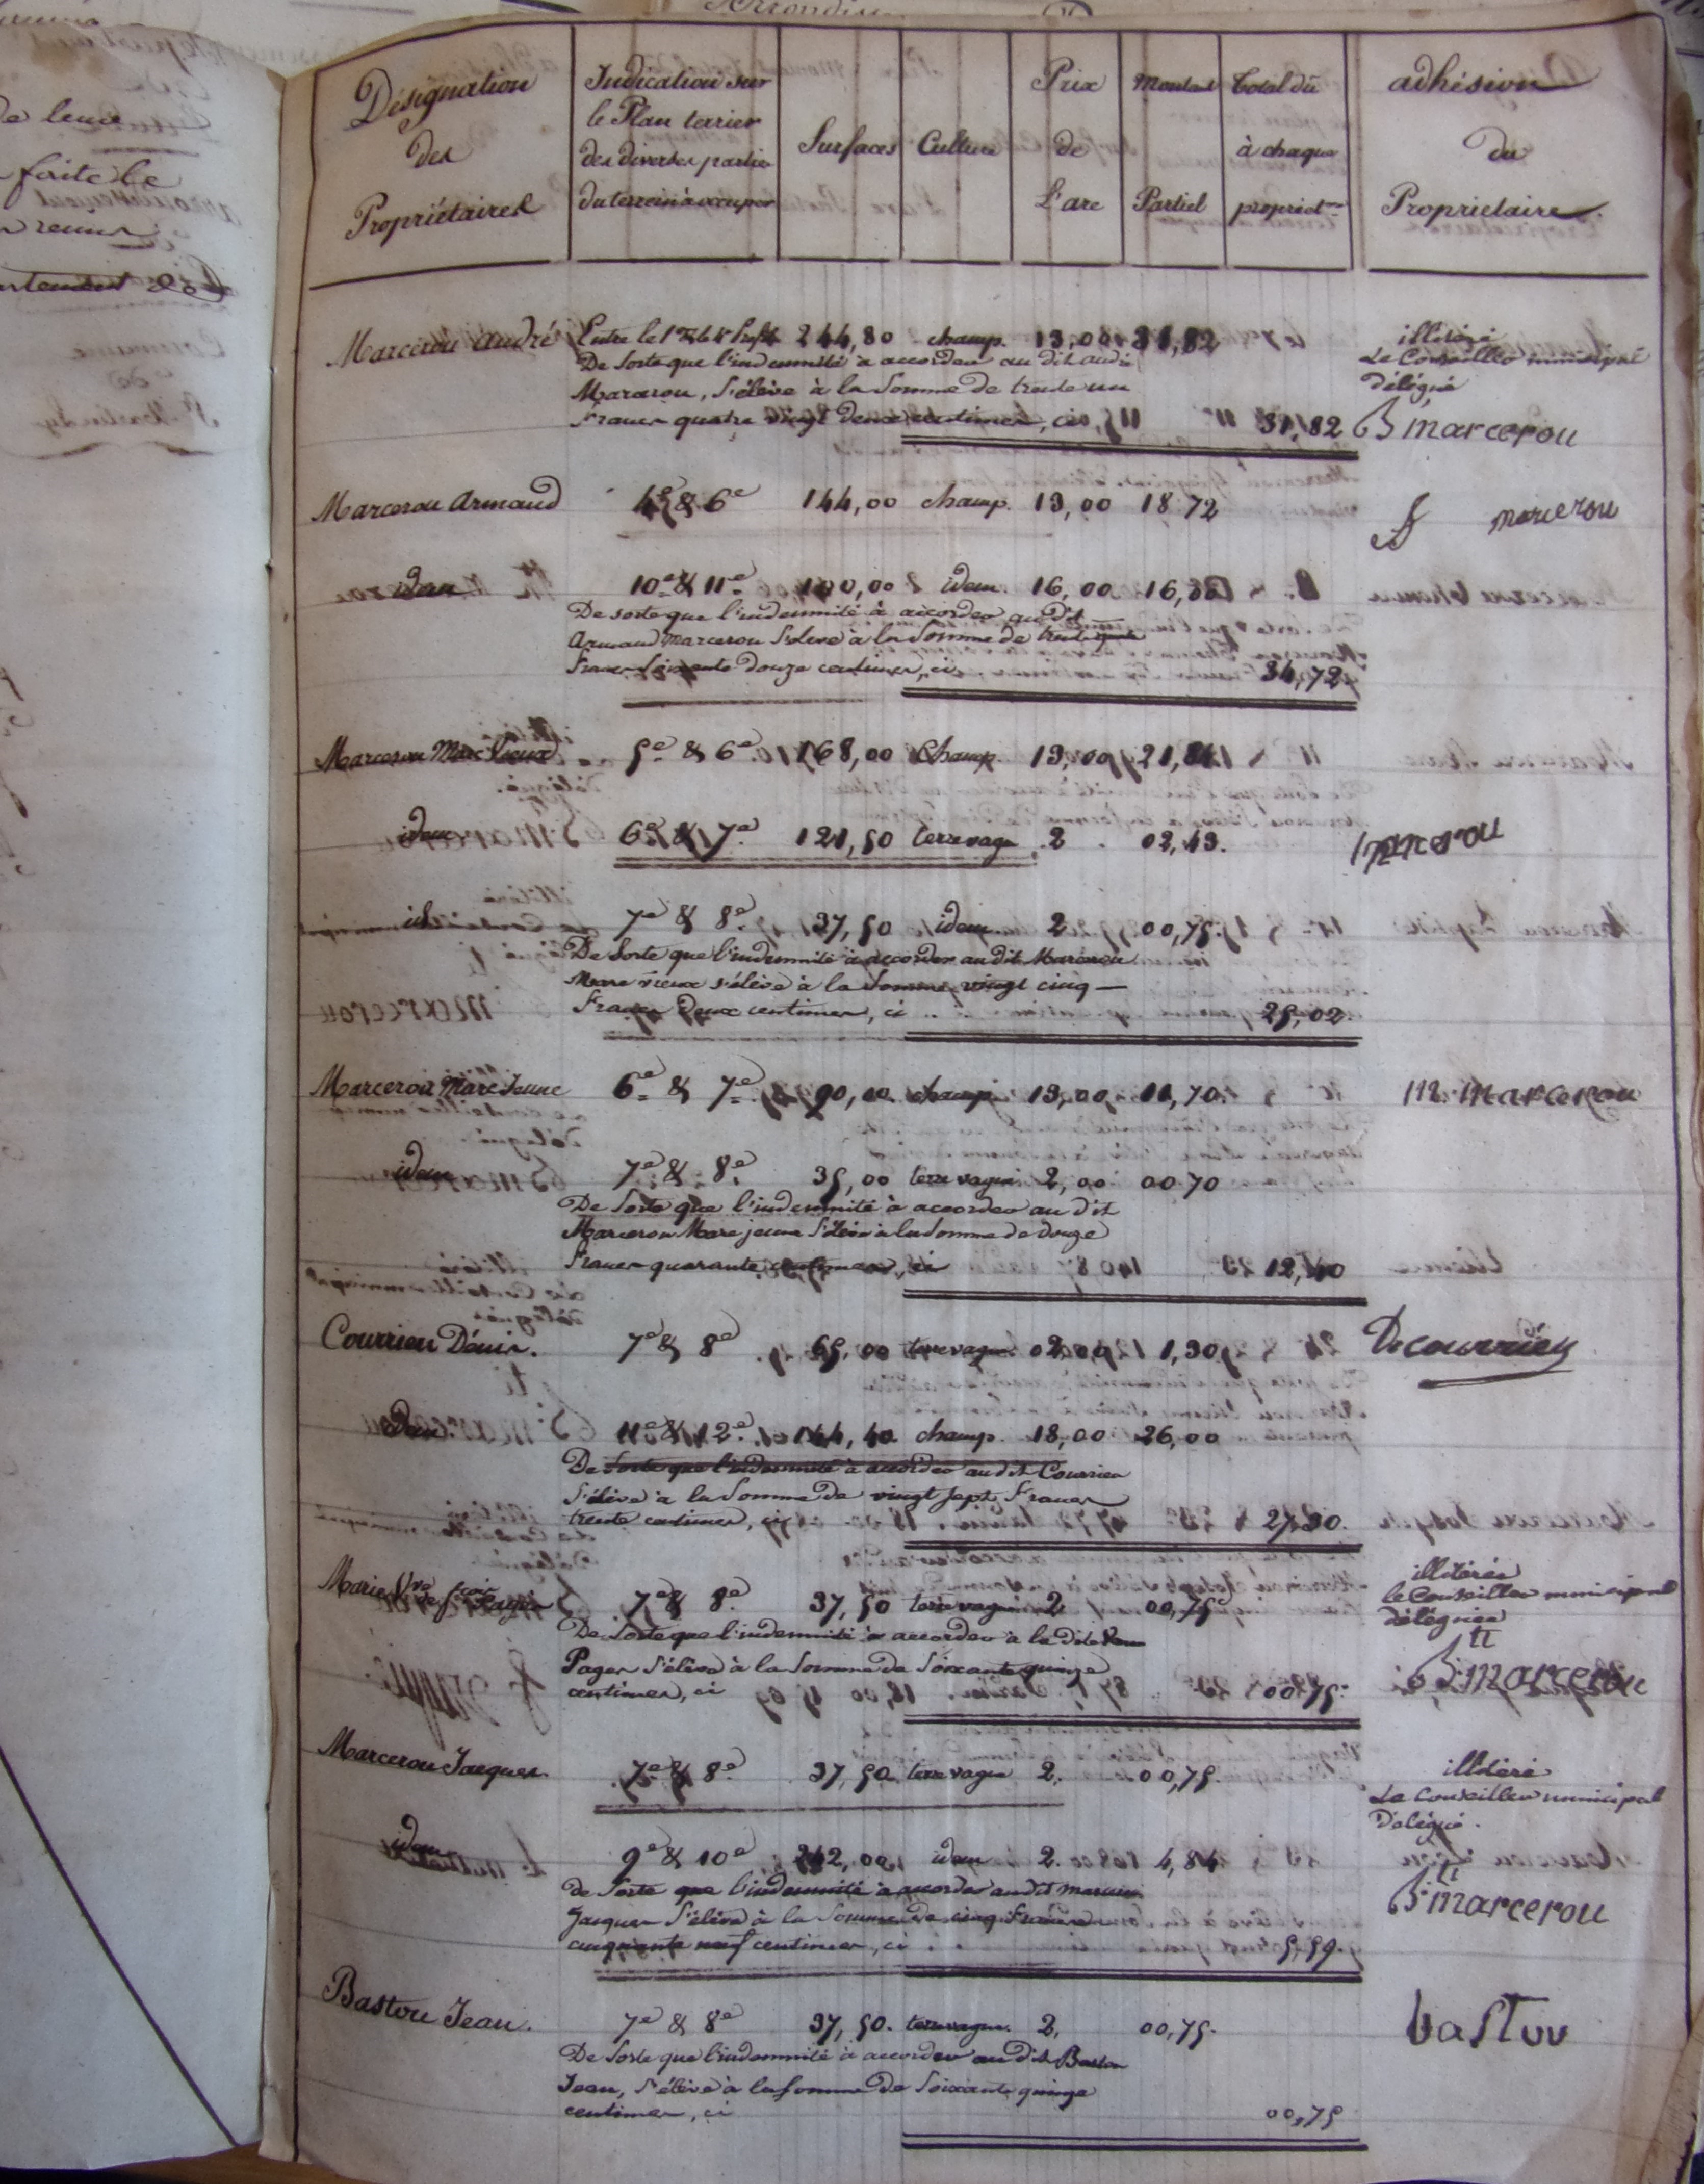 de leur
faite le
Désignation des Propriétaires
Indication sur le Plan terrier des diverses parties du terrein à occuper
Surfaces
Culture
Prix de L'are
Montant Partiel
Total dû à chaque propriét.re
adhésion du Propriétaire
Marcerou André Entre le 1er & le 4e Profil 244,80 champ. 13,00 31,82 illétéré
De sorte que l'indemnité à accorder au dit andré Le Conseiller municipal
Marcerou, s'élève à la Somme de trente un Délégué
Francs quatre vingt deux centimes, ci 31,82 B marcerou
Marcerou Armand 4e & 6e 144,00 champ. 13,00 18 72 marcerou
idem 10e & 11e 100,00 idem 16,00 16,00
De sorte que l'indemnité à accorder au dit
Armand Marcerou s'élève à la Somme de trente quatre
Francs Soixante Douze centimes, ci 34,72
Marcerou Marc Vieux 5e & 6e 168,00 Champ. 13,00 21,84
idem 6e & 7e 121,50 terre vague 2 02,43. marcerou
id 7e & 8e 37,50 idem 2 00,75.
De Sorte que l'indemnité à accorder au dit Marcerou
Marc vieux s'élève à la Somme vingt cinq
Francs Deux centimes, ci 25,02.
Marcerou Marc Jeune 6e & 7e 90,00 champ. 13,00 11,70. m. marcerou
idem 7e & 8e 35,00 terre vague 2,00 00 70
De Sorte que l'indemnité à accorder au dit
Marcerou Marc jeune S'élève à la Somme de Douze
Francs quarante centimes, ci 12,40
Courrieu Dénis. 7e & 8e 65,00 terre vague 02,00 1,30 De courrieu
idem 11e & 12e 144,40 champ. 18,00 26,00
De Sorte que l'indemnité à accorder au dit Courrieu
S'élève à la Somme de vingt sept Francs
trente centimes, ci 27,30.
Marie Vve de fçois Pagés 7e & 8e 37,50 terre vague 2 00,75 illétérée
De Sorte que l'indemnité à accorder à la dite Veuve le Conseiller municipal
Pages S'élève à la Somme de Soixante quinze délégué
centimes, ci 00 75. B marcerou
Marcerou Jacques. 7e & 8e 37,50 terre vague 2. 00,75. illétéré
Le Conseiller municipal
Délégué.
idem 9e & 10e 242,00 idem 2. 4,84
de Sorte que l'indemnité à accorder au dit Marcerou
Jacques S'élève à la Somme de cinq Francs B marcerou
cinquante neuf centimes, ci 5,59.
Bastou Jean. 7e & 8e 37,50. terre vague. 2, 00,75. bastou
De Sorte que l'indemnité à accorder au dit Bastou
Jean, S'élève à la Somme de Soixante quinze
centimes, ci 00,75